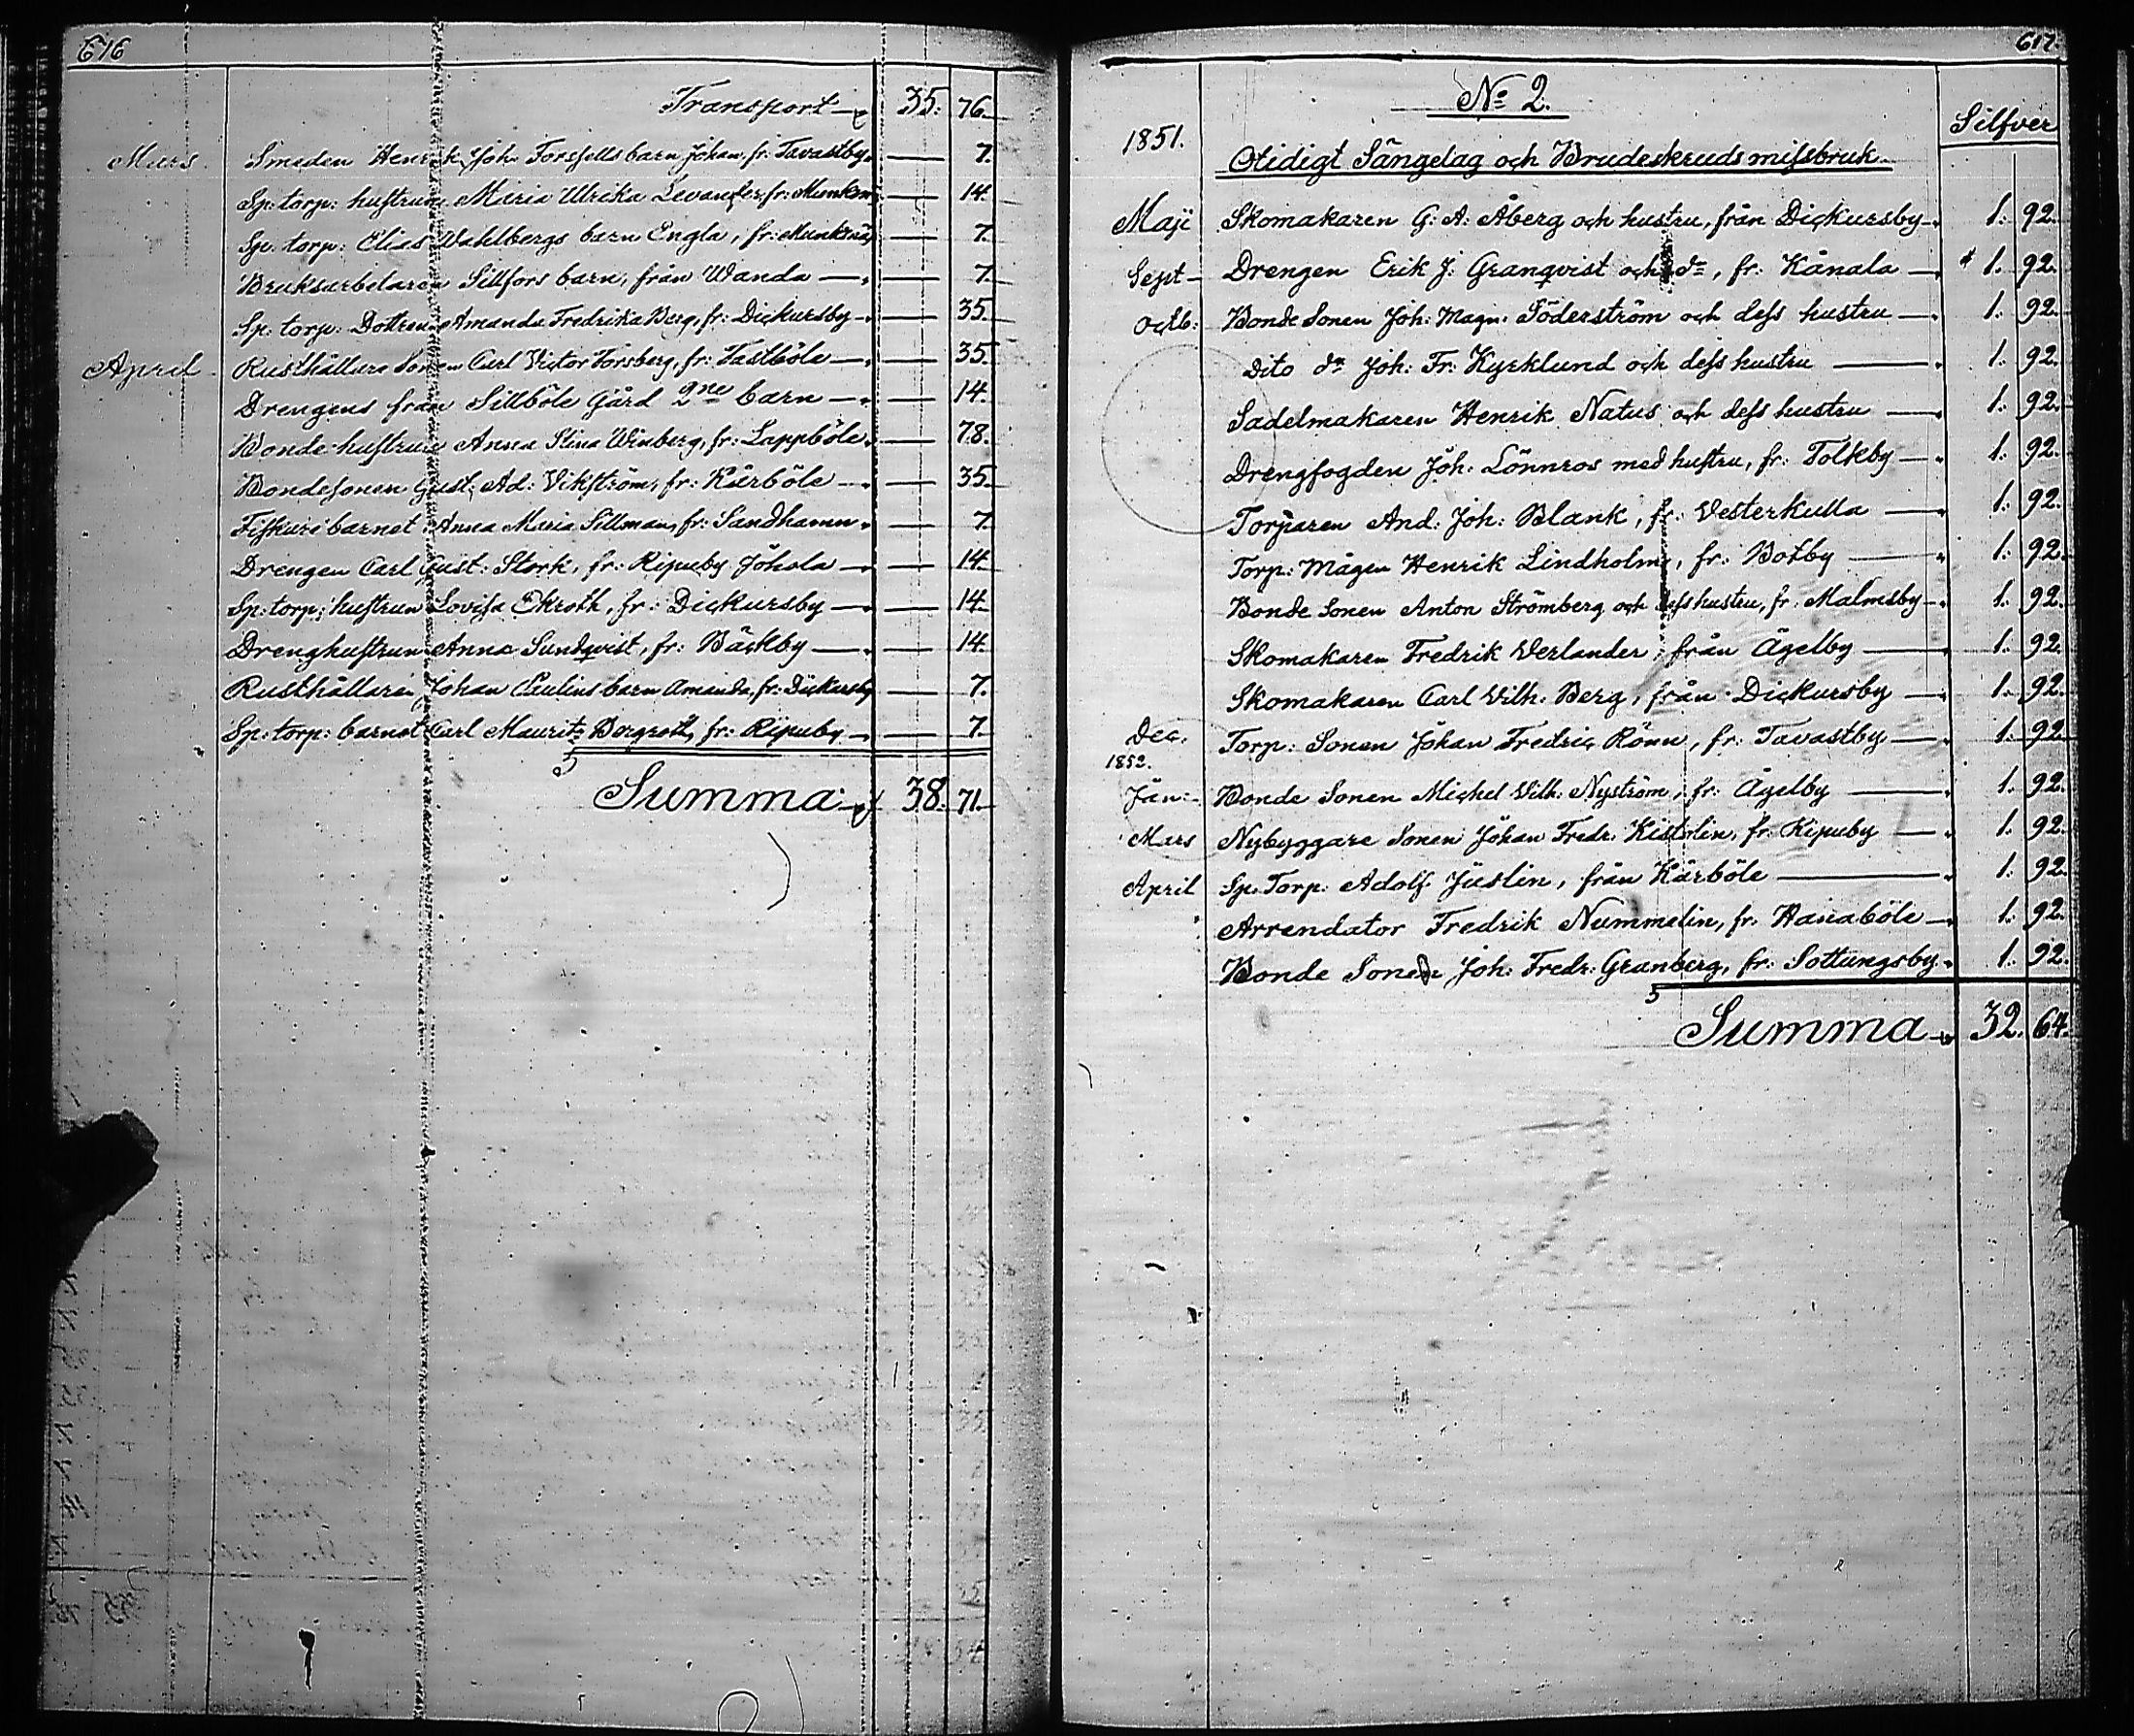 676
Transport 35. 76.
Mars. Smeden Henrik Joh. Forsfells barn Johan, fr: Tavastby. — 7.
Sp: torp: hustrun Maria Ulrika Levander, fr: Munksn: — 14.
Sp: torp: Elias Wahlbergs barn Engla, fr: Munksnäs — 7.
Bruksarbetaren Sillfors barn, från Wanda — 7.
Sp: torp: Dottren Amanda Fredrika Berg, fr: Dickursby — 35.
April. Rusthållare Sonen Carl Victor Forsberg, fr: Fastböle — 35.
Drengens från Sillböle Gård 2ne barn — 14.
Bonde hustrun Anna Stina Winberg, fr: Lappböle — 78.
Bondesonen Gust: Ad: Vikström, fr: Kårböle — 35.
Fiskare barnet Anna Maria Sillman, fr: Sandhamn — 7.
Drengen Carl Gust: Stork, fr: Ripuby Johola — 14.
Sp: torp: hustrun Lovisa Ekroth, fr: Dickursby — 14.
Drenghustrun Anna Sundqvist, fr: Bäckby — 14.
Rusthållaren Johan Paulins barn Amanda, fr: Dickursby — 7.
Sp: torp: barnet Carl Maurits Bergroth, fr: Ripuby — 7.
Summa 38. 71.
617.
No 2.
Silfver
1851.
Otidigt Sängelag och Brudeskruds missbruk.
Maji Skomakaren G: A: Åberg och hustru, från Dickursby 1. 92.
Sept Drengen Erik J: Granqvist och do, fr: Kånala 1. 92.
Octb: Bonde Sonen Joh: Magn: Söderström och dess hustru 1. 92.
Dito do Joh: Fr: Kyrklund och dess hustru 1. 92.
Sadelmakaren Henrik Natus och dess hustru 1. 92.
Drengfogden Joh: Lönnros med hustru, fr: Tolkby 1. 92.
Torparen And: Joh: Blank, fr: Vesterkulla 1. 92.
Torp: Mågen Henrik Lindholm, fr: Botby 1. 92.
Bonde Sonen Anton Strömberg och dess hustru, fr: Malmsby 1. 92.
Skomakaren Fredrik Verlander, från Ågelby 1. 92.
Skomakaren Carl Vilh: Berg, från Dickursby 1. 92.
Dec. Torp: Sonen Johan Fredric Rönn, fr: Tavastby 1. 92
1852.
Jan: Bonde Sonen Michel Vilh: Nyström, fr: Ågelby 1. 92.
Mars Nybyggare Sonen Johan Fredr: Kistolin, fr: Ripuby 1. 92.
April Sp: Torp: Adolf Juslin, från Kårböle 1. 92.
Arrendator Fredrik Nummelin, fr: Hanaböle 1. 92.
Bonde Sonen Joh: Fredr: Granberg, fr: Sottungsby 1. 92.
Summa 32. 64.